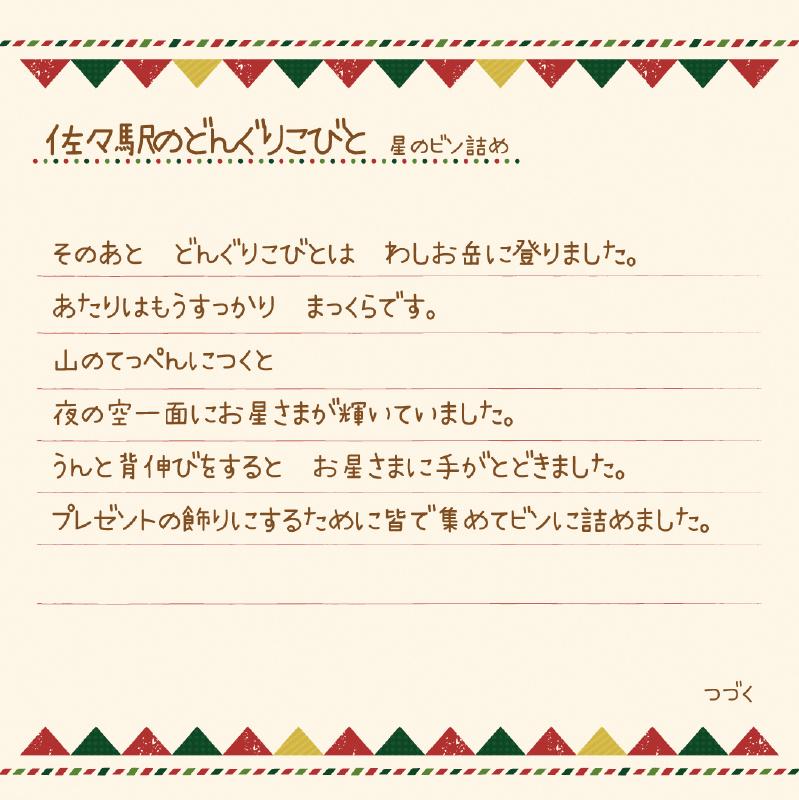 佐々駅のどんぐりこびと　星のビン詰め
そのあと　どんぐりこびとは　わしお岳に登りました。
あたりはもうすっかり　まっくらです。
山のてっぺんにつくと
夜の空一面にお星さまが輝いていました。
うんと背伸びをすると　お星さまに手がとどきました。
プレゼントの飾りにするために皆で集めてビンに詰めました。
つづく